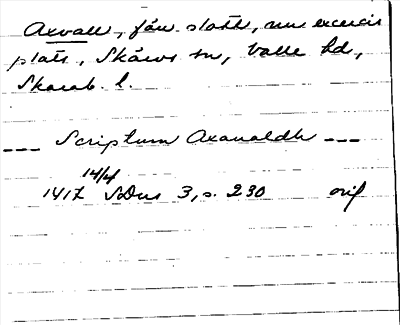 Axvall, fân slott, nu excercis
plats, Skärvs sn, Valle hd,
Skarab. l.
--- Scriptum Axaualdh ---
14/4
1417 SDns 3, s. 230 orig